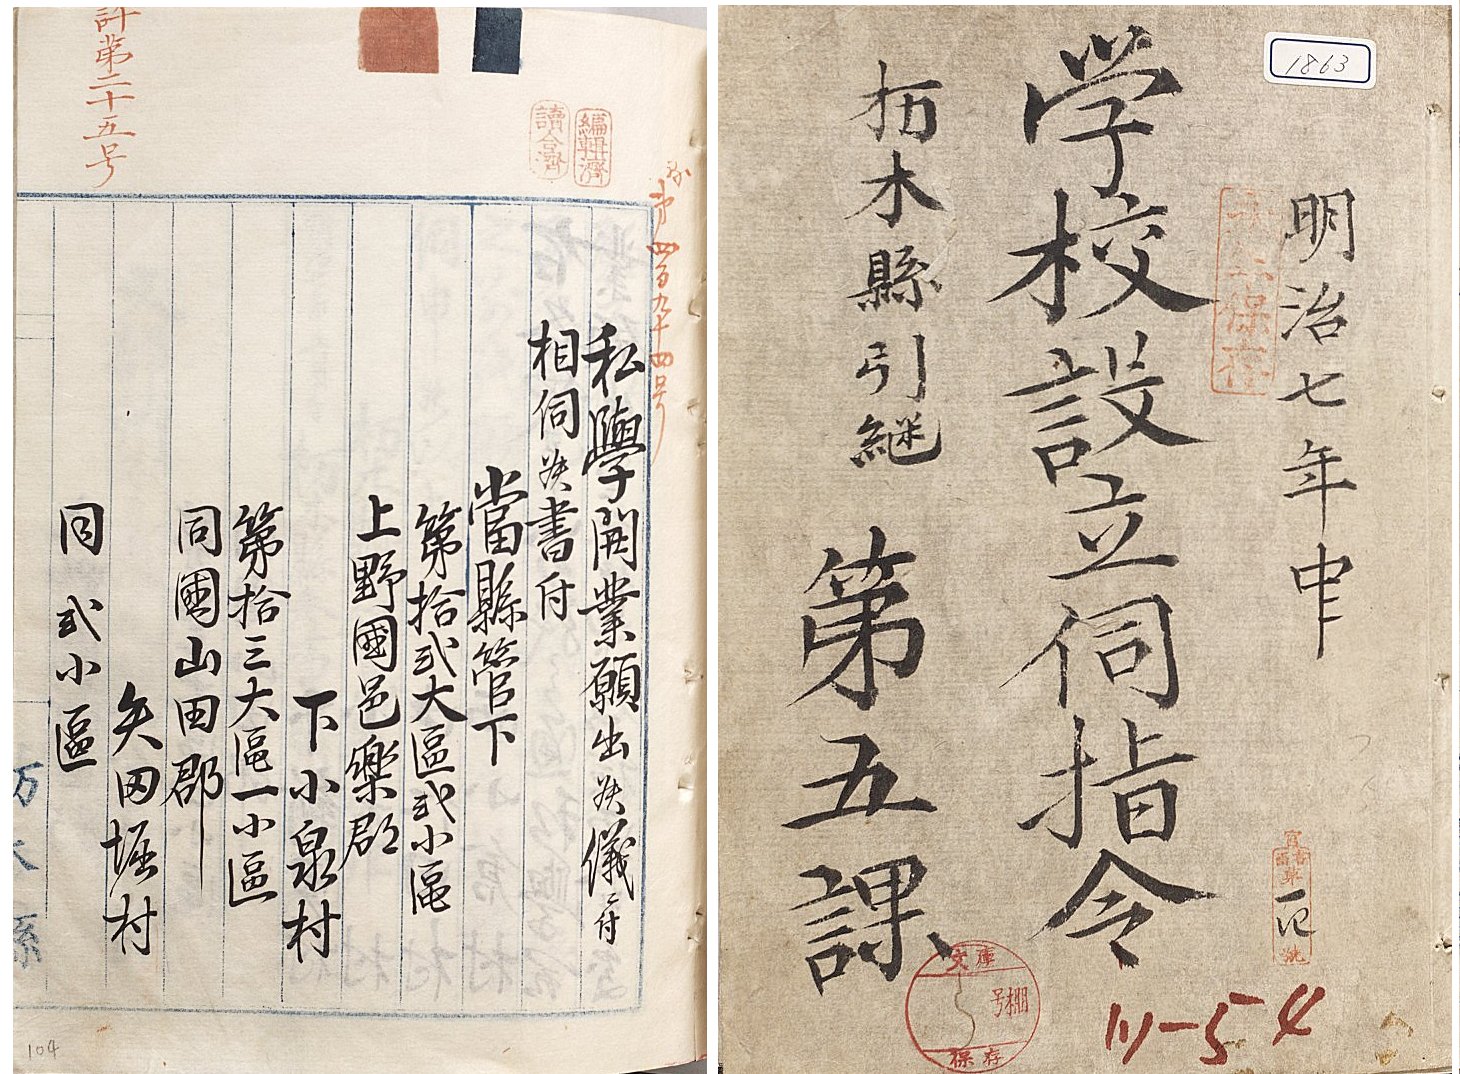 1863
明治七年中
永年保存
学校設立伺指令
栃木縣引継
第五課
文庫
号棚
保存
川一54
第四百九十四号
編輯濟
讀合濟
私學開業願出候儀ニ付
相伺候書付
當縣管下
第拾弐大區弐小區
上野國邑樂郡
下小泉村
第拾三大區一小區
同國山田郡
矢田堀村
同弐小區
計第二十五号
104